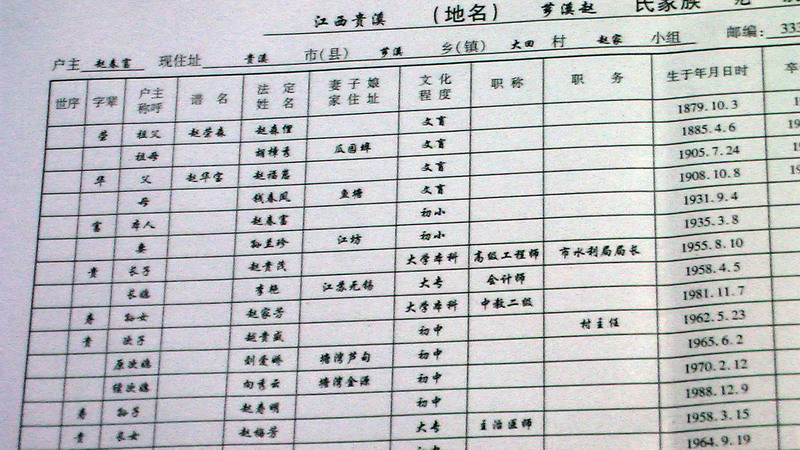 江西贵溪 (地名) 芗溪赵 氏家族
户主 赵春富 现住址 贵溪 市(县) 芗溪 乡(镇) 大田 村 赵家 小组 邮编: 33
世序 字辈 户主称呼 谱名 法定姓名 妻子娘家住址 文化程度 职称 职务 生于年月日时 卒
荣 祖父 赵荣森 赵森俚 文盲 1879.10.3
祖母 胡樟秀 瓜园埠 文盲 1885.4.6
华 父 赵华宝 赵福崽 文盲 1905.7.24
母 钱春凤 鱼塘 文盲 1908.10.8
富 本人 赵春富 初小 1931.9.4
妻 孙兰珍 江坊 初小 1935.3.8
贵 长子 赵贵茂 大学本科 高级工程师 市水利局局长 1955.8.10
长媳 李艳 江苏无锡 大专 会计师 1958.4.5
寿 孙女 赵家芳 大学本科 中教二级 1981.11.7
贵 次子 赵贵盛 初中 村主任 1962.5.23
原次媳 刘爱娇 塘湾芦甸 初中 1965.6.2
续次媳 向秀云 塘湾金源 初中 1970.2.12
寿 孙子 赵寿明 初中 1988.12.9
贵 长女 赵梅芳 大专 主治医师 1958.3.15
1964.9.19